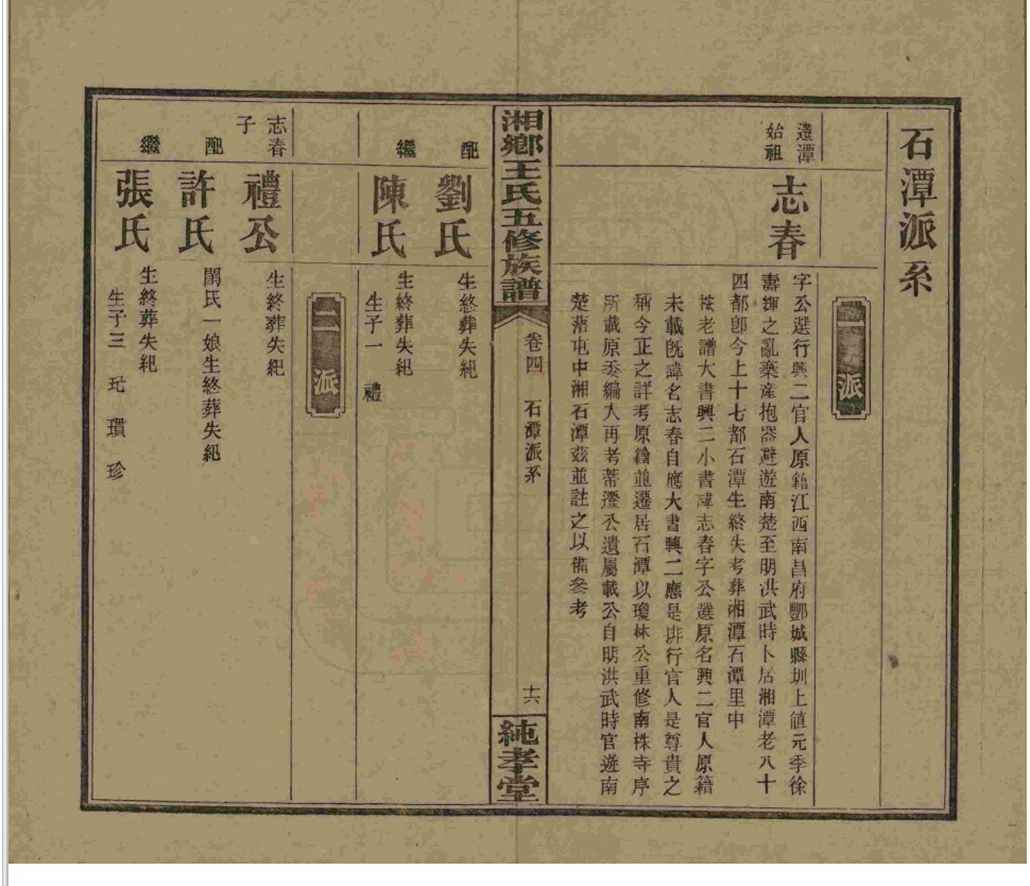 石潭派系
一派
遷潭
始祖
志春
字公選行興二官人原籍江西南昌府酆城縣圳上值元季徐
壽輝之亂棄産抱器避遊南楚至明洪武時卜居湘潭老八十
四都卽今上十七都石潭生終失考葬湘潭石潭里中
按老譜大書興二小書諱志春字公選原名興二官人原籍
未載旣諱名志春自應大書興二應是排行官人是尊貴之
稱今正之詳考原籍並遷居石潭以瓊林公重修南株寺序
所載原委編入再考蒂瀅公遺屬載公自明洪武時官遊南
楚落屯中湘石潭茲並註之以備參考
湘鄉王氏五修族譜
卷四
石潭派系
十六
純孝堂
配
劉氏
生終葬失紀
繼
陳氏
生終葬失紀
生子一
禮
二派
志春
子
禮公
生終葬失紀
配
許氏
閨氏一娘生終葬失紀
繼
張氏
生終葬失紀
生子三
玭
瓚
珍